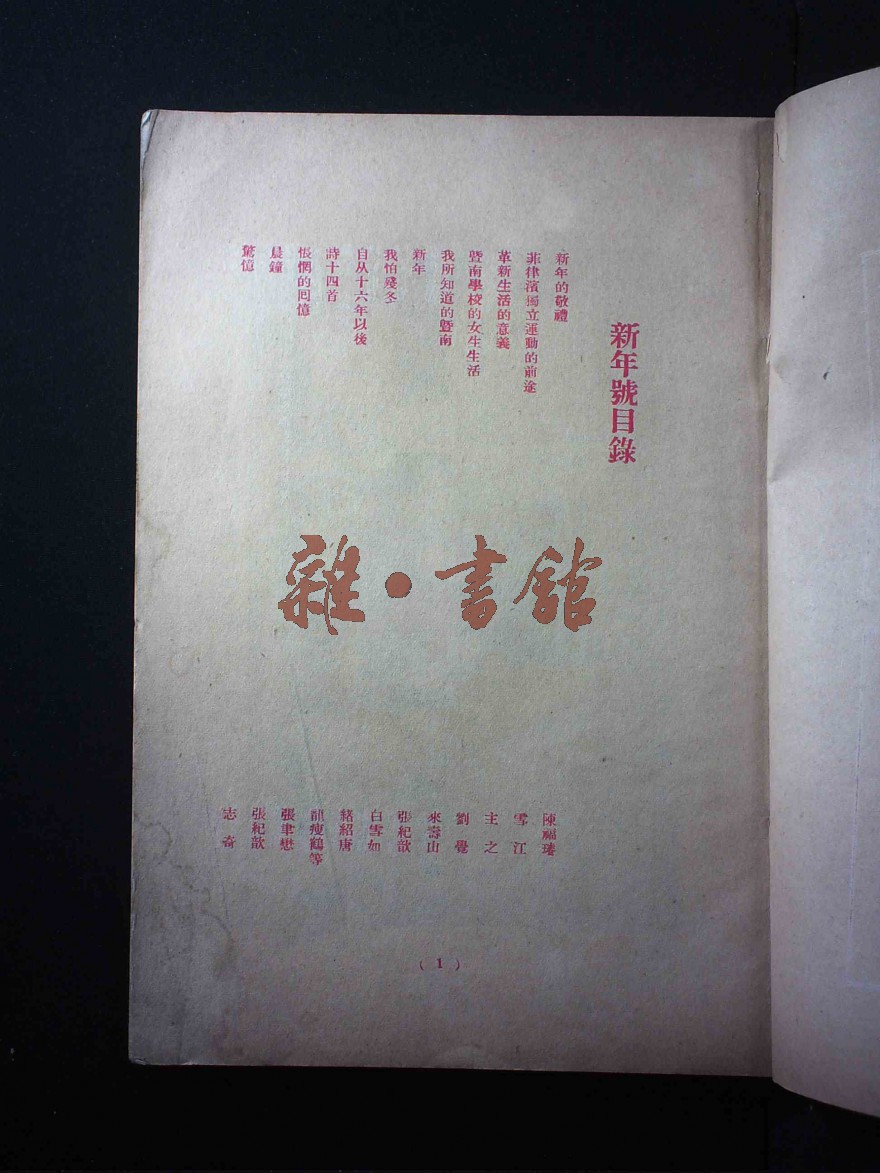 新年號目錄
新年的敬禮
陳福璿
菲律濱獨立運動的前途
雪江
革新生活的意義
主之
暨南學校的女生生活
劉覺
我所知道的暨南
來壽山
新年
張紀歆
我怕殘冬
白雪如
自从十六年以後
緒紹唐
詩十四首
瘦鶴等
悵惘的囘憶
張聿懋
晨鐘
張紀歆
驚憶
志奇
(1)
雜·書館